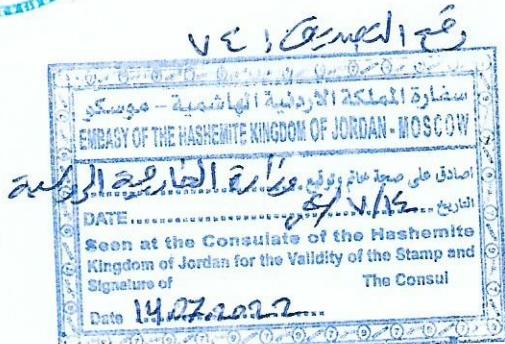 رقم التصديق: ٧٤١
سفارة المملكة الاردنية الهاشمية – موسكو
EMBASY OF THE HASHEMITE KINGDOM OF JORDAN - MOSCOW
اصادق على صحة خاتم وتوقيع وزارة الخارجية الروسية
DATE ........ ٧/١٤ التاريخ
Seen at the Consulate of the Hashemite
Kingdom of Jordan for the Validity of the Stamp and
Signature of The Consul
Date 14.07.2022